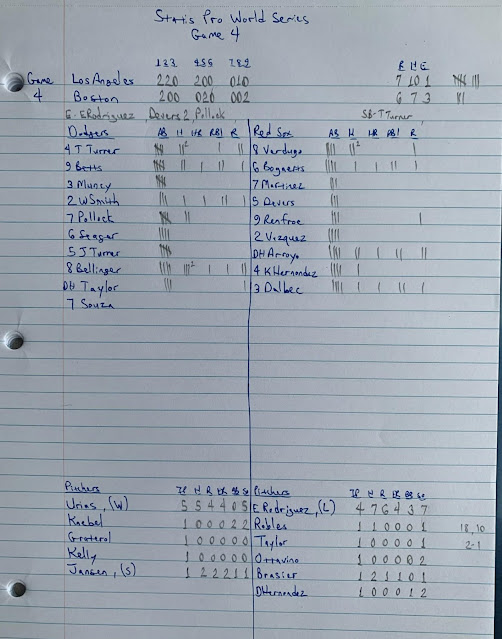 Statis Pro World Series
Game 4
123 456 789 R H E
Game Los Angeles 220 200 010 7 10 1
4 Boston 200 020 002 6 7 3
E-ERodriguez, Devers 2, Pollock, SB-TTurner
Dodgers AB H HR RBI R Red Sox AB H HR RBI R
4 T Turner 8 Verdugo
9 Betts 6 Bogaerts
3 Muncy 7 Martinez
2 WSmith 5 Devers
7 Pollock 9 Renfroe
6 Seager 2 Vazquez
5 J Turner DH Arroyo
8 Bellinger 4 KHernandez
DH Taylor 3 Dalbec
7 Souza
Pitchers IP H R ER BB SO Pitchers IP H R ER BB SO
Urias, (W) 5 5 4 4 0 5 ERodriguez, (L) 4 7 6 4 3 7
Knebel 1 0 0 0 2 2 Robles 1 1 0 0 0 1 18,10
Graterol 1 0 0 0 0 0 Taylor 1 0 0 0 0 1 2-1
Kelly 1 0 0 0 0 0 Ottavino 1 0 0 0 0 2
Jansen, (S) 1 2 2 2 1 1 Brasier 1 2 1 1 0 1
DHernandez 1 0 0 0 1 2